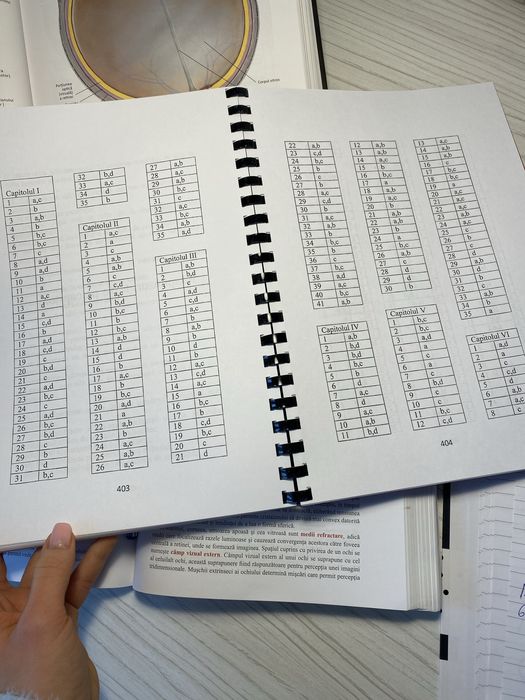 Porțiunea
optică
(vizuală)
a retinei
Corpul vitros
Capitolul I
1 a,c
2 b
3 a,b
4 b
5 b,c
6 b,c
7 c
8 a,d
9 a,d
10 b
11 a
12 a,c
13 d
14 a
15 c,d
16 b
17 a,d
18 c,d
19 c
20 b,d
21 c
22 a,d
23 b,c
24 c
25 a,d
26 b,c
27 b,d
28 c
29 b
30 d
31 b,c
32 b,d
33 a,c
34 d
35 b
Capitolul II
1 a,c
2 a
3 c
4 a,b
5 a,b
6 c
7 c,d
8 a,c
9 b,d
10 b,c
11 b
12 b,c
13 a,b
14 d
15 d
16 b
17 a,c
18 b
19 b,c
20 a,d
21 a
22 a,b
23 b
24 a,c
25 a,b
26 a,c
27 a,b
28 a,c
29 a,b
30 b,c
31 c
32 a,c
33 b,c
34 a,b
35 a,d
Capitolul III
1 a,b
2 b,d
3 c
4 a,d
5 c,d
6 a,c
7 b
8 a,b
9 b
10 d
11 b
12 a,c
13 c,d
14 a,c
15 a
16 b,c
17 b
18 c,d
19 b,c
20 c
21 d
403
22 a,b
23 c,d
24 b,c
25 b
26 c
27 b
28 a,c
29 c,d
30 b
31 a,c
32 a,b
33 b
34 b,c
35 b
36 c
37 b
38 a,d
39 a,c
40 b,c
41 a,b
Capitolul IV
1 a,b
2 b,d
3 b,d
4 b,c
5 b
6 d
7 a,c
8 d
9 a,c
10 a,b
11 b,d
12 a,b
13 b
14 a,c
15 b
16 b,c
17 a
18 a,b
19 a,c
20 b
21 a,b
22 a,b
23 b
24 a
25 b,c
26 a,b
27 c
28 d
29 d
30 b
Capitolul V
1 b,c
2 b,c
3 a,d
4 a
5 c
6 a
7 c
8 b,d
9 c
10 c
11 b,c
12 c,d
13 a,c
14 a,b
15 a,b
16 b
17 b,c
18 b,c
19 a
20 a,c
21 a,c
22 a,c
23 a,b
24 a,c
25 d
26 b
27 c
28 d
29 a,b
30 d
31 b
32 c
33 a,b
34 b
35 a
Capitolul VI
1 a,d
2 a
3 c
4 c,d
5 d
6 a,b
7 a,c
8 c
404
mai convex datorită
o formă sferică.
apoasă și cea vitroasă sunt medii refractare, adică
focalizează razele luminoase și cauzează convergența acestora către fovea
centrală a retinei, unde se formează imaginea. Spațiul cuprins cu privirea de un ochi se
numește câmp vizual extern. Câmpul vizual extern al unui ochi se suprapune cu cel
al celuilalt ochi, această suprapunere fiind răspunzătoare pentru percepția unei imagini
tridimensionale. Mușchii extrinseci ai ochiului determină mișcări care permit percepția